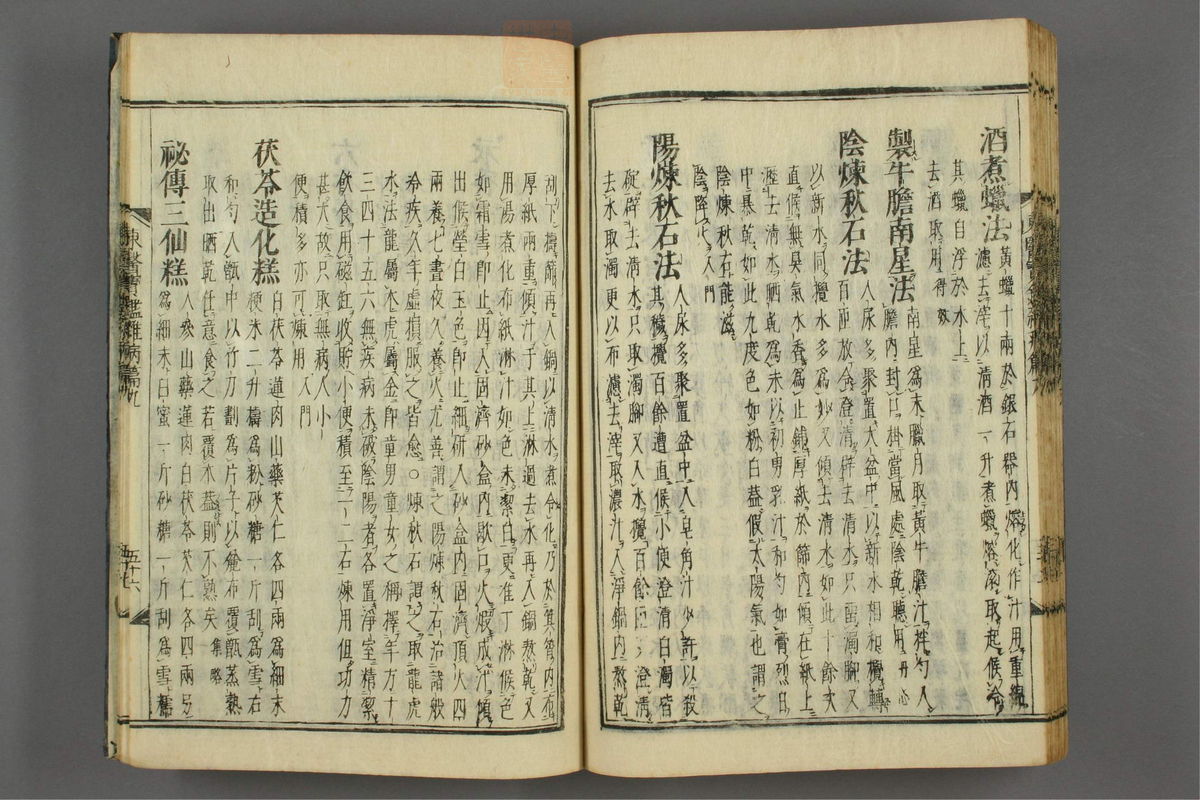 酒煮蠟法黃蠟十兩於銀石器內熔化作汁用重綿
濾去滓以淸酒一升煮蠟熔滾取起候冷
其蠟自浮於水上
去酒取用 得效
製牛膽南星法南星爲末臘月取黃牛膽汁拌勻入
膽內封口掛當風處陰乾聽用 丹心
陰煉秋石法人尿多聚置大盆中以新水相和攪轉
百匝放令澄淸辟去淸水只留濁腳又
以新水同攪水多爲妙又傾去淸水如此十餘次
直候無臭氣水香爲止鋪厚紙於篩內傾在紙上
瀝去淸水晒乾爲末以初男乳汁和勻如膏烈日
中暴乾如此九度色如粉白蓋假太陽氣也謂之
陰煉秋石能滋
陰降火 入門
陽煉秋石法人尿多聚置盆中入皂角汁少許以殺
其穢攪百餘遭直候小便澄淸白濁皆
碇辟去淸水只取濁腳又入水攪百餘匝又澄淸
去水取濁更以布濾去滓取濃汁入淨鍋內熬乾
刮下擣篩再入鍋以淸水煮令化乃於箕管內布
厚紙兩重傾汁于其上淋過去水再入鍋熬乾又
用湯煮化布紙淋汁如色未潔白更准丁淋候色
如霜雪卽止因入固濟砂盒內歇口火煆成汁傾
出候瑩白玉色卽止細研入砂盒內固濟頂火四
兩養七晝夜久養火尤善謂之陽煉秋石治諸般
冷疾久年虛損服之皆愈○煉秋石謂之取龍虎
水法龍屬木虎屬金卽童男童女之稱擇年方十
三四十五六無疾病未破陰陽者各置淨室精潔
飮食用磁缸收貯小便積至一二石煉用但功力
甚大故只取無病人小
便積多亦可煉用 入門
茯苓造化糕白茯苓蓮肉山藥芡仁各四兩爲細末
粳米二升擣爲粉砂糖一斤刮爲雪右
和勻入甑中以竹刀劃爲片子以縫布覆甑蒸熟
取出晒乾任意食之若覆木蓋則不熟矣 集略
祕傳三仙糕人參山藥蓮肉白茯苓芡仁各四兩另
爲細末白蜜一斤砂糖一斤刮爲雪糯
東醫寶鑑雜病篇九
五十六